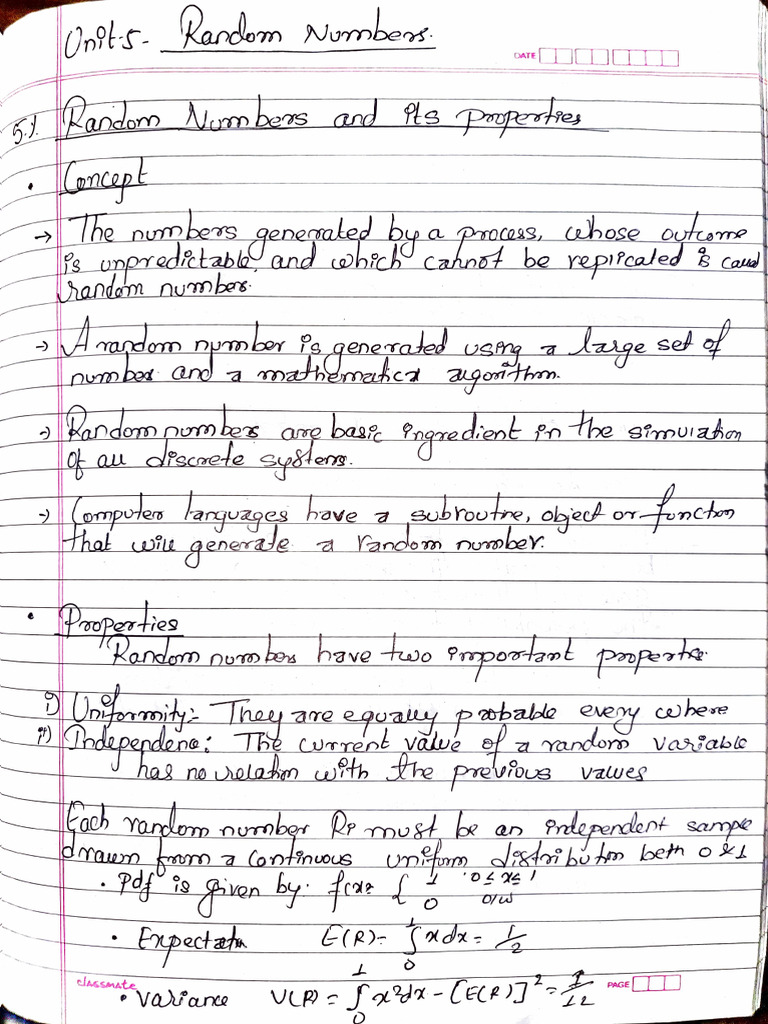 Unit-5- Random Numbers.
DATE
5.1. Random Numbers and its properties
• Concept
→ The numbers generated by a process, whose outcome
is unpredictable, and which cannot be replicated is called
random numbers.
→ A random number is generated using a large set of
number and a mathematical algorithm.
→ Random numbers are basic ingredient in the simulation
of all discrete systems.
→ Computer languages have a subroutine, object or function
that will generate a random number.
• Properties
Random numbers have two important properties.
i) Uniformity:- They are equally probable every where
ii) Independence: The current value of a random variable
has no relation with the previous values
Each random number Ri must be an independent sample
drawn from a continuous uniform distribution betn 0 & 1
• Pdf is given by: f(x)= { 1 0 ≤ x ≤ 1
0 o/w
• Expectation E(R) = ∫₀¹ x dx = 1/2
• Variance V(R) = ∫₀¹ x² dx - [E(R)]² = 1/12
classmate PAGE